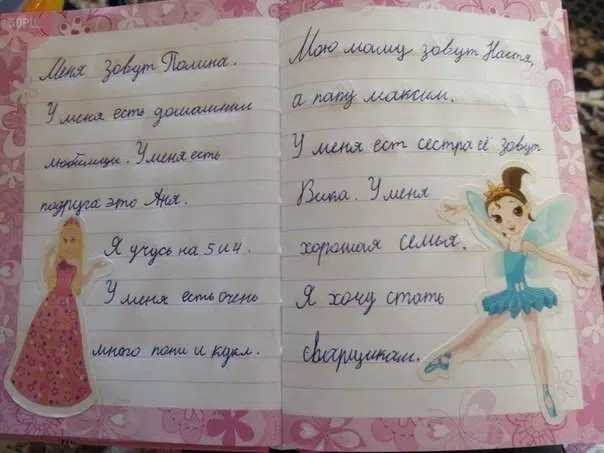 BOPЩ
Меня зовут Полина.
У меня есть домашнии
любимци. У меня есть
подруга это Аня.
Я учусь на 5 и 4.
У меня есть очень
много пони и кукл.
Мою маму зовут Настя,
а папу максим.
У меня ест сестра её зовут
Вика. У меня
хорошая семья.
Я хочу стать
сварщикам.